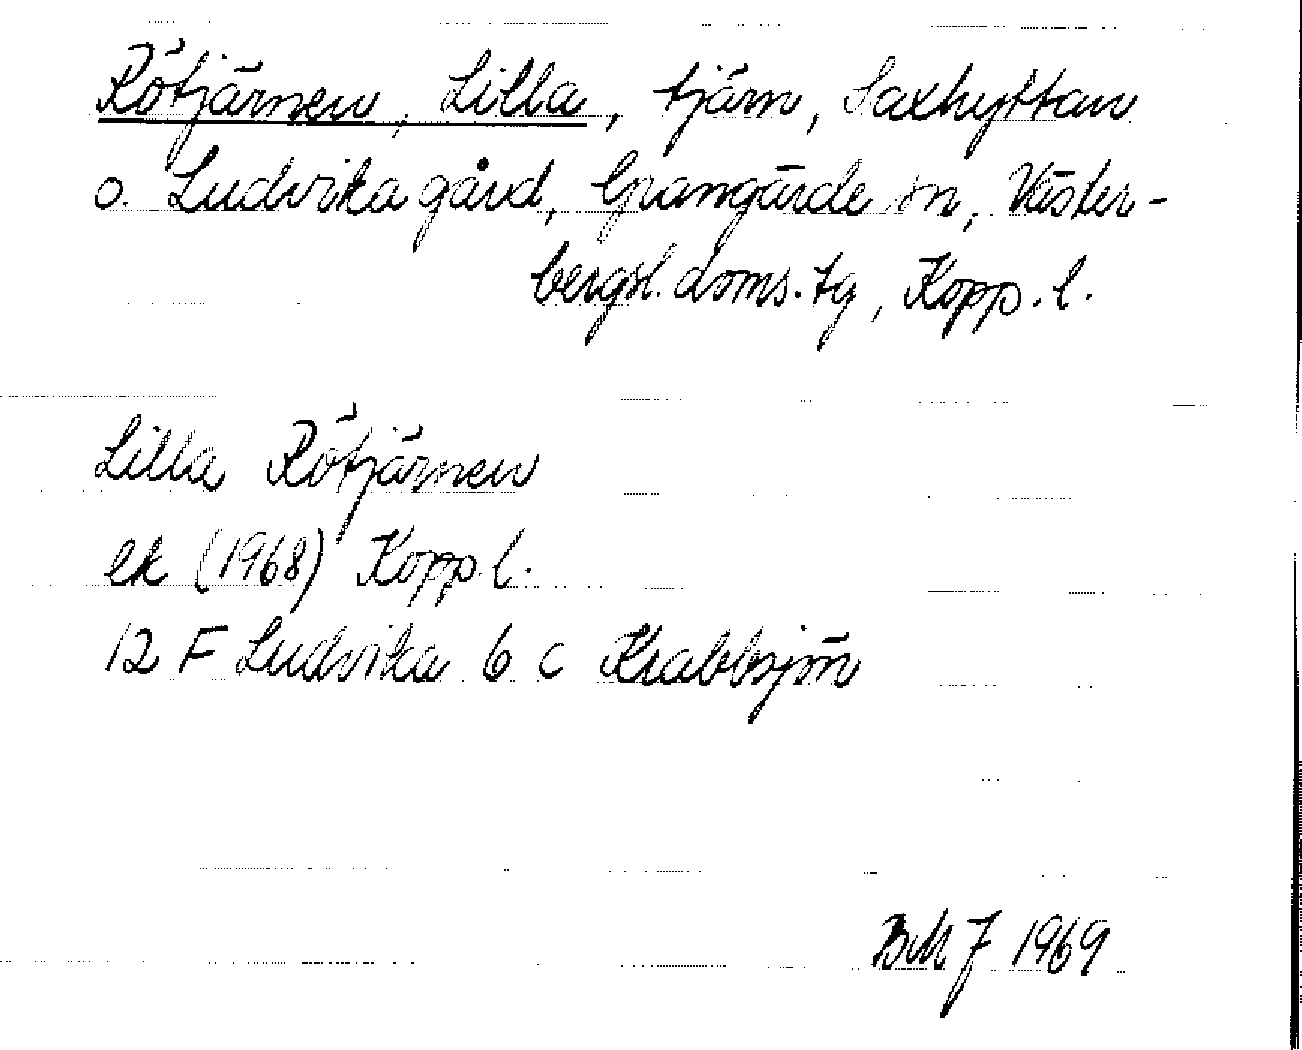 Rötjärnen, Lilla, tjärn, Saxhyttan
o. Ludvika gård, Grangärde sn, Väster-
bergsl. doms. tg, Kopp. l.
Lilla Rötjärnen
ek (1968) Kopp. l.
12 F Ludvika 6 c Krabbsjön
BMJ 1969